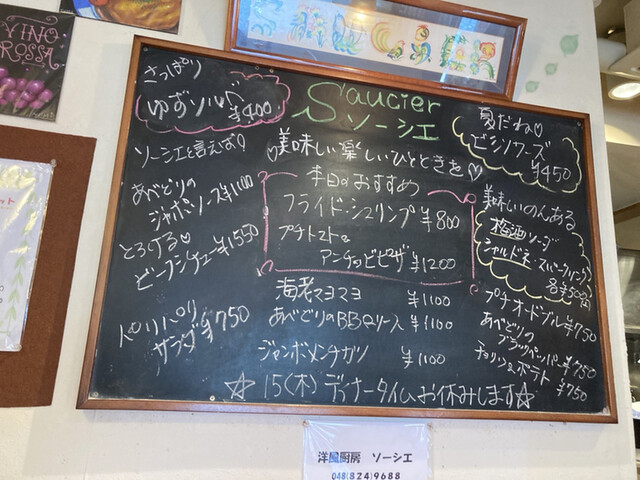 VINO
ROSSA
さっぱり
ゆずソルベ
¥400
Saucier
ソーシエ
夏だね♡
ビシソワーズ
¥450
ソーシエと言えば♡
あべどりの
ジャポソース¥1100
とろける♡
ビーフシチュー¥1550
パリパリ
サラダ¥750
♡美味しい楽しいひとときを♡
本日のおすすめ
フライドシュリンプ ¥800
プチトマトと
アンチョビピザ ¥1200
海老マヨマヨ ¥1100
あべどりのBBQソース ¥1100
ジャンボメンチカツ ¥1100
美味しいのんある
梅酒ソーダ
シャルドネスパークリング
各450円
プチオードブル¥750
あべどりの
ブラックペッパー¥750
チョリソ&ポテト
¥750
☆15(木)ディナータイムお休みします☆
洋風厨房 ソーシエ
048(824)9688